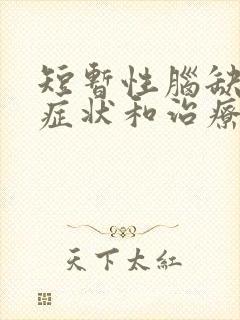 短暫性腦缺
症状和治療
天下太紅